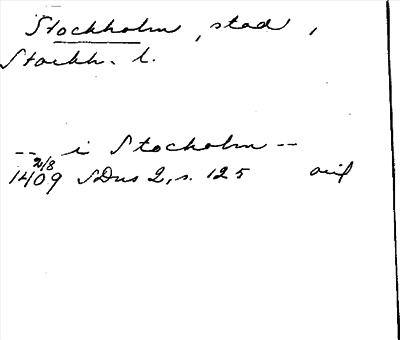 Stockholm, stad,
Stockh. l.
-- i Stocholm --
2/8
1409 SDns 2, s. 125 avil